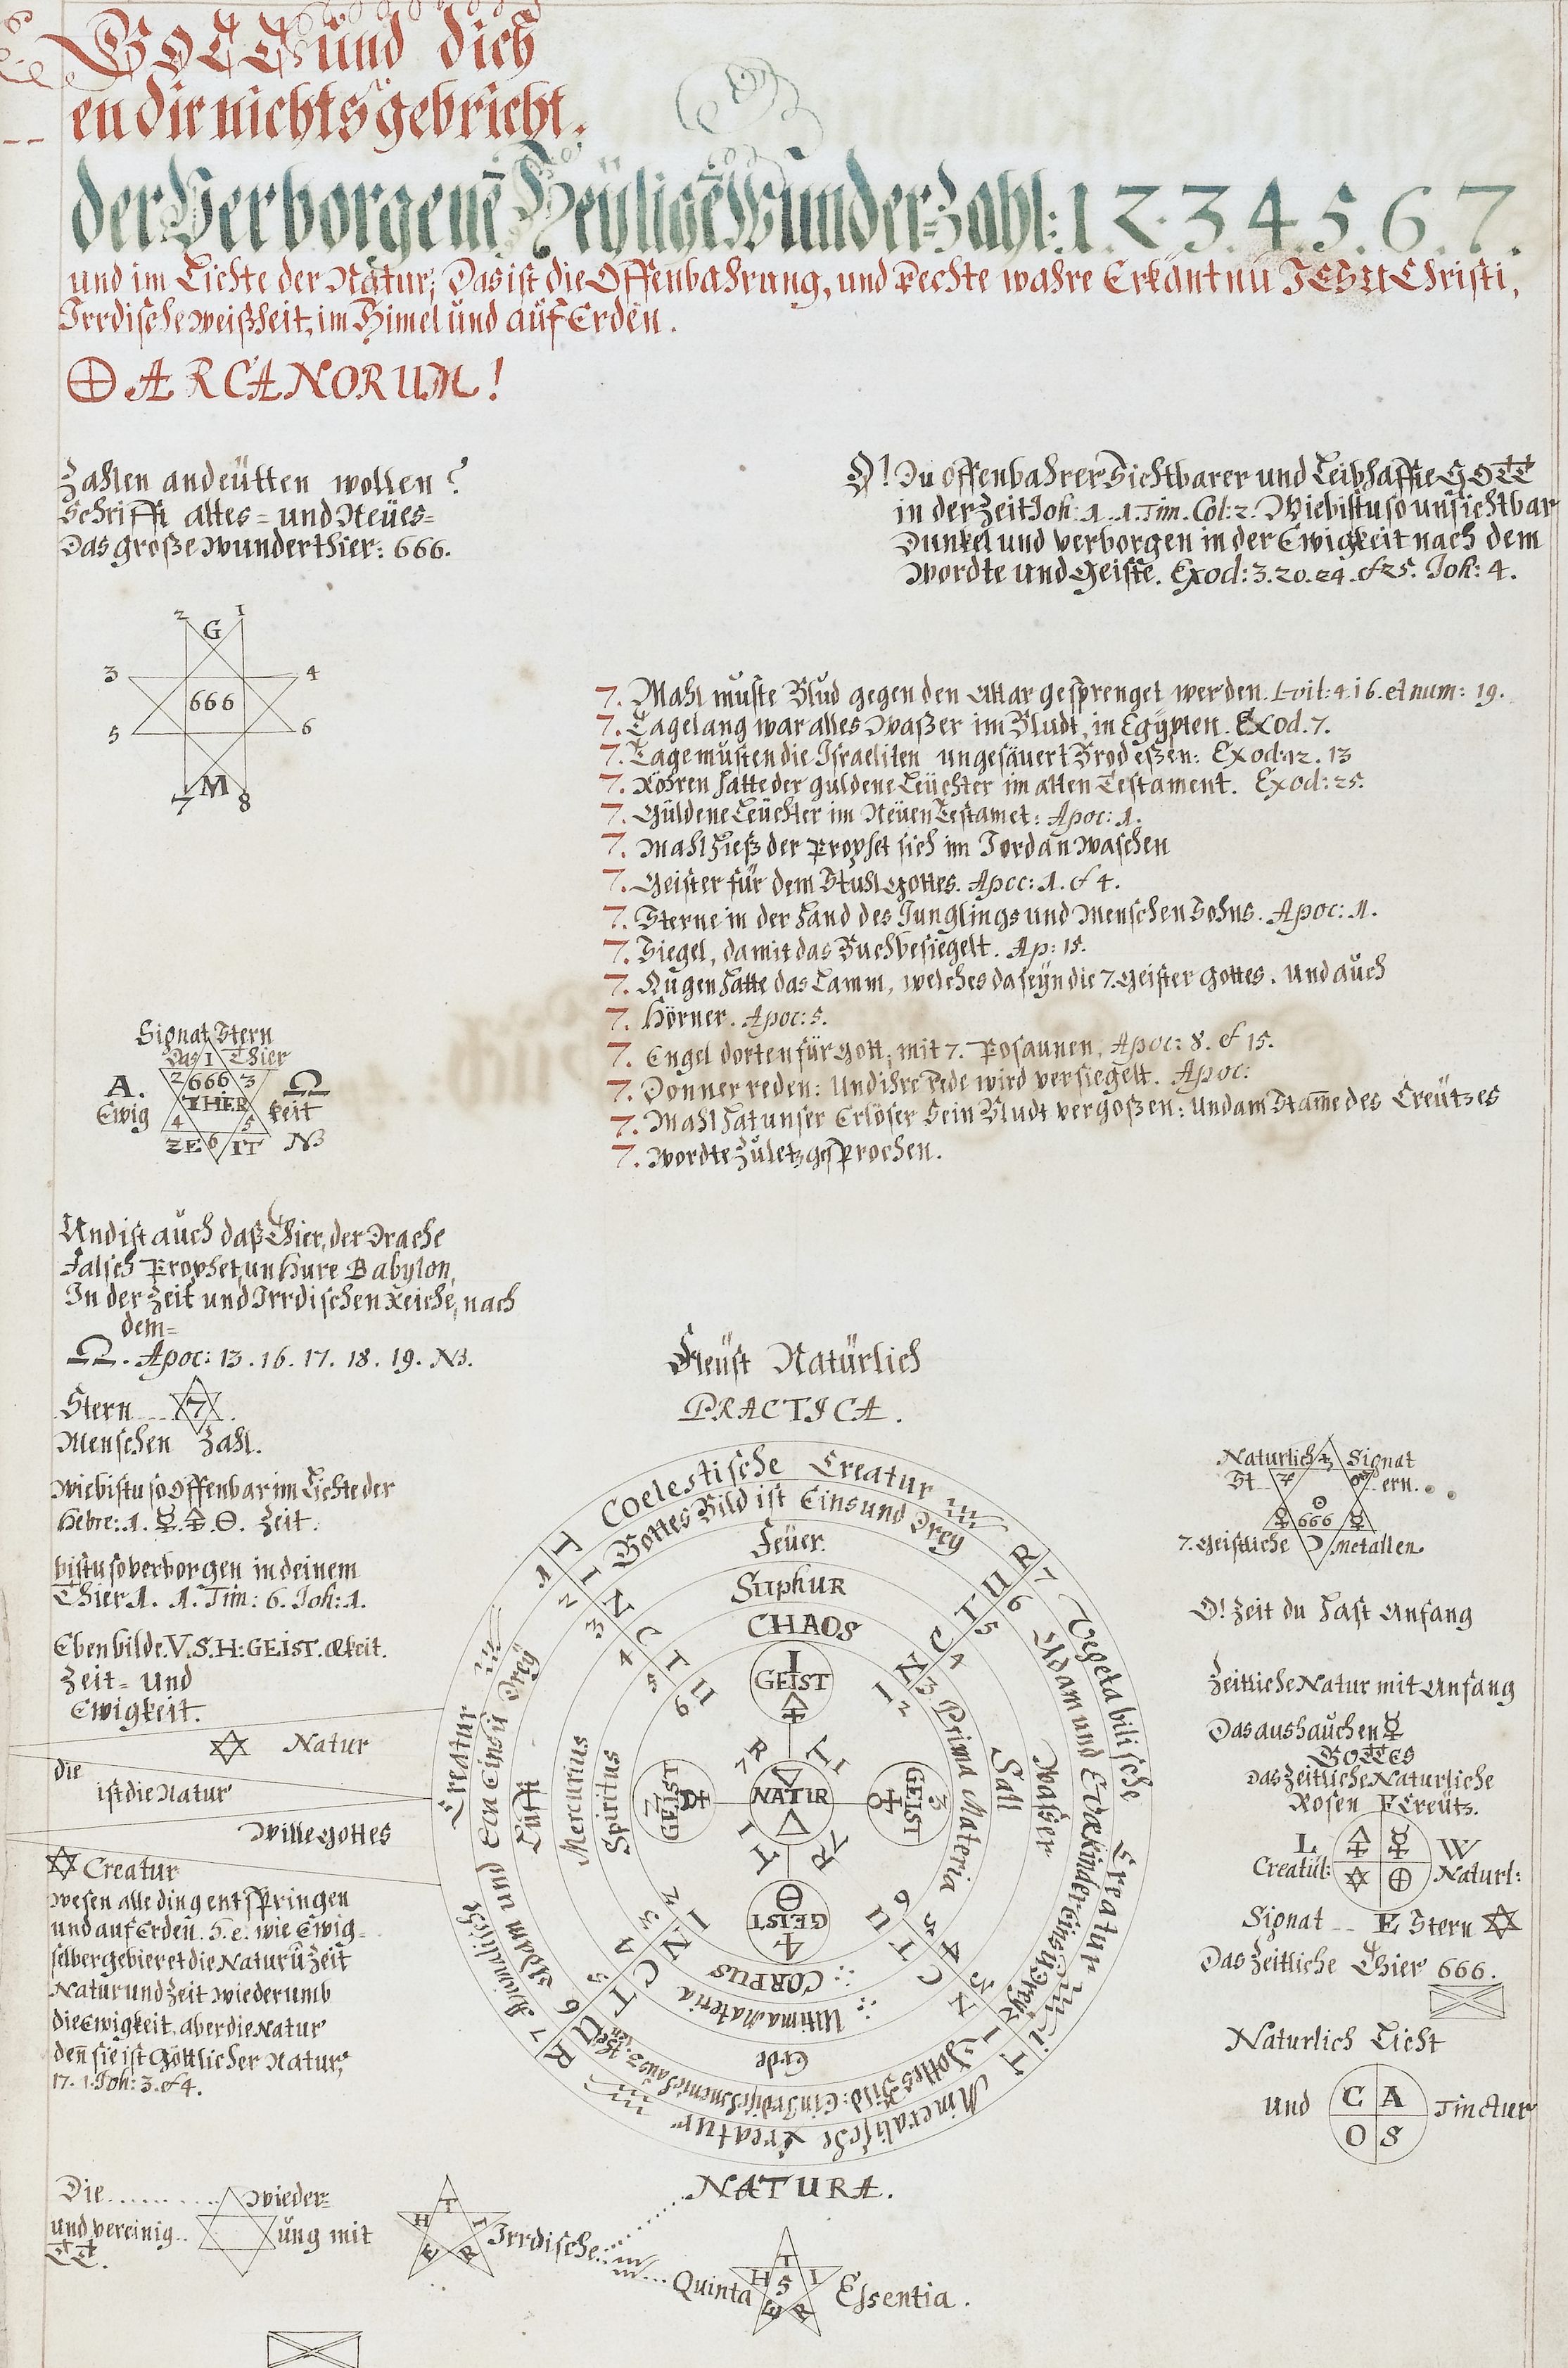 GOTT und dich
en dir nichts gebricht.
der Verborgenē Heÿligē Wunder=Zahl: 1.2.3.4.5.6.7.
und im Lichte der Natur, Das ist die Offenbahrung, und Rechte wahre Erkäntnū JESU Christi,
Irrdische Weißheit, im Himel und auf Erden.
ARCANORUM!
Zahlen andeütten wollen?
Schrifft altes= und Neües=
Das große Wunderthier: 666.
O! Du offenbahrer Sichtbarer und Leibhaffte GOTT
in der Zeit Joh: 1. 1. Tim. Col: 2. Wie bistu so unsichtbar
Dunkel und verborgen in der Ewigkeit nach dem
Wordte und Geiste. Exod: 3. 20. 24. & 25. Joh: 4.
2 1
G
3 4
666
5 6
M
7 8
7. Mahl muste Blud gegen den Altar gesprenget werden. Lvit: 4. 16. et num: 19.
7. Tage lang war alles Waßer im Bludt, in Egÿpten. Exod. 7.
7. Tage musten die Israeliten ungesäuert Brod eßen: Exod: 12. 13
7. Röhren hatte der guldene Leüchter im alten Testament. Exod: 25.
7. Güldene Leüchter im Neüen Testamet: Apoc: 1.
7. Mahl hieß der Prophet sich im Jordan waschen
7. Geister für dem Stuhl Gottes. Apoc: 1. & 4.
7. Sterne in der Hand des Junglings und Menschen Sohns. Apoc: 1.
7. Siegel, damit das Buch besiegelt. Ap: 15.
7. Augen hatte das Lamm, welches da seÿn die 7. Geister Gottes. Und auch
7. Hörner. Apoc: 5.
7. Engel dorten für Gott, mit 7. Posaunen, Apoc: 8. & 15.
7. Donner reden: Und ihre Rede wird versiegelt. Apoc:
7. Mahl hat unser Erlöser Sein Bludt vergoßen: Und am Stam̄e des Creützes
7. Wordte zuletz gesprochen.
Signat Stern
Das 1 Thier
2 666 3
A. THER Ω
Ewig keit
4 5
ZE 6 IT NB
Und ist auch daß Thier, der Drache
Falsch Prophet, un Hure Babylon,
In der Zeit und Irrdischen Reiche, nach
dem=
Ω. Apoc: 13. 16. 17. 18. 19. NB.
Stern 7
Menschen Zahl.
Wie bistu so Offenbar im Lichte der
Hebre: 1. ☿. 🜍. ⊖. Zeit:
bistu so verborgen in deinem
Thier 1. 1. Tim: 6. Joh: 1.
Ebenbilde. V. S. H: GEIST.
Zeit= und
Ewigkeit.
✡ Natur
die
ist die Natur
Wille Gottes
✡ Creatur
Wesen alle ding entspringen
und auf Erden. S. e. wie Ewig=
selber gebieret die Natur ū Zeit
Natur und Zeit wiederumb
die Ewigkeit, aber die Natur
den̄ sie ist Göttlicher Natur,
17. 1. Joh: 3. & 4.
Die ......... Wieder=
und vereinig.. ung mit
Fleüst Natürlich
PRACTICA.
Coelestische Creatur
Gottes Bild ist Eins und Dreÿ
Feüer.
Sulphur
CHAOS
1
GEIST
Vegetabilische Creatur
Waßer
Saltz
Prima Materia
3
GEIST
Mineralische Creatur
Erde
Ultima Materia
CORPUS
4
GEIST
Animalische Creatur
Lufft
Mercurius
Spiritus
2
GEIST
NATIR
T I N C T U R
1 2 3 4 5 6 7
T I N C T U R
1 2 3 4 5 6 7
T I N C T U R
1 2 3 4 5 6 7
T I N C T U R
1 2 3 4 5 6 7
NATURA.
T
H I
E R
Irrdische
Quinta
T
H 5 I
E R
Essentia.
Naturlich ♄ Signat
St ♃ ♂ ern..
☉
♀ 666 ☿
7. Geistliche ☽ Metallen
O! Zeit du hast Anfang
Zeitliche Natur mit Anfang
Das aushauchen ☿
GOTTES
Das Zeitliche Naturliche
Rosen F Creütz.
L W
Creatül: Naturl:
Signat E Stern ✡
Das Zeitliche Thier 666.
Naturlich Licht
und C A Tinctur
O S